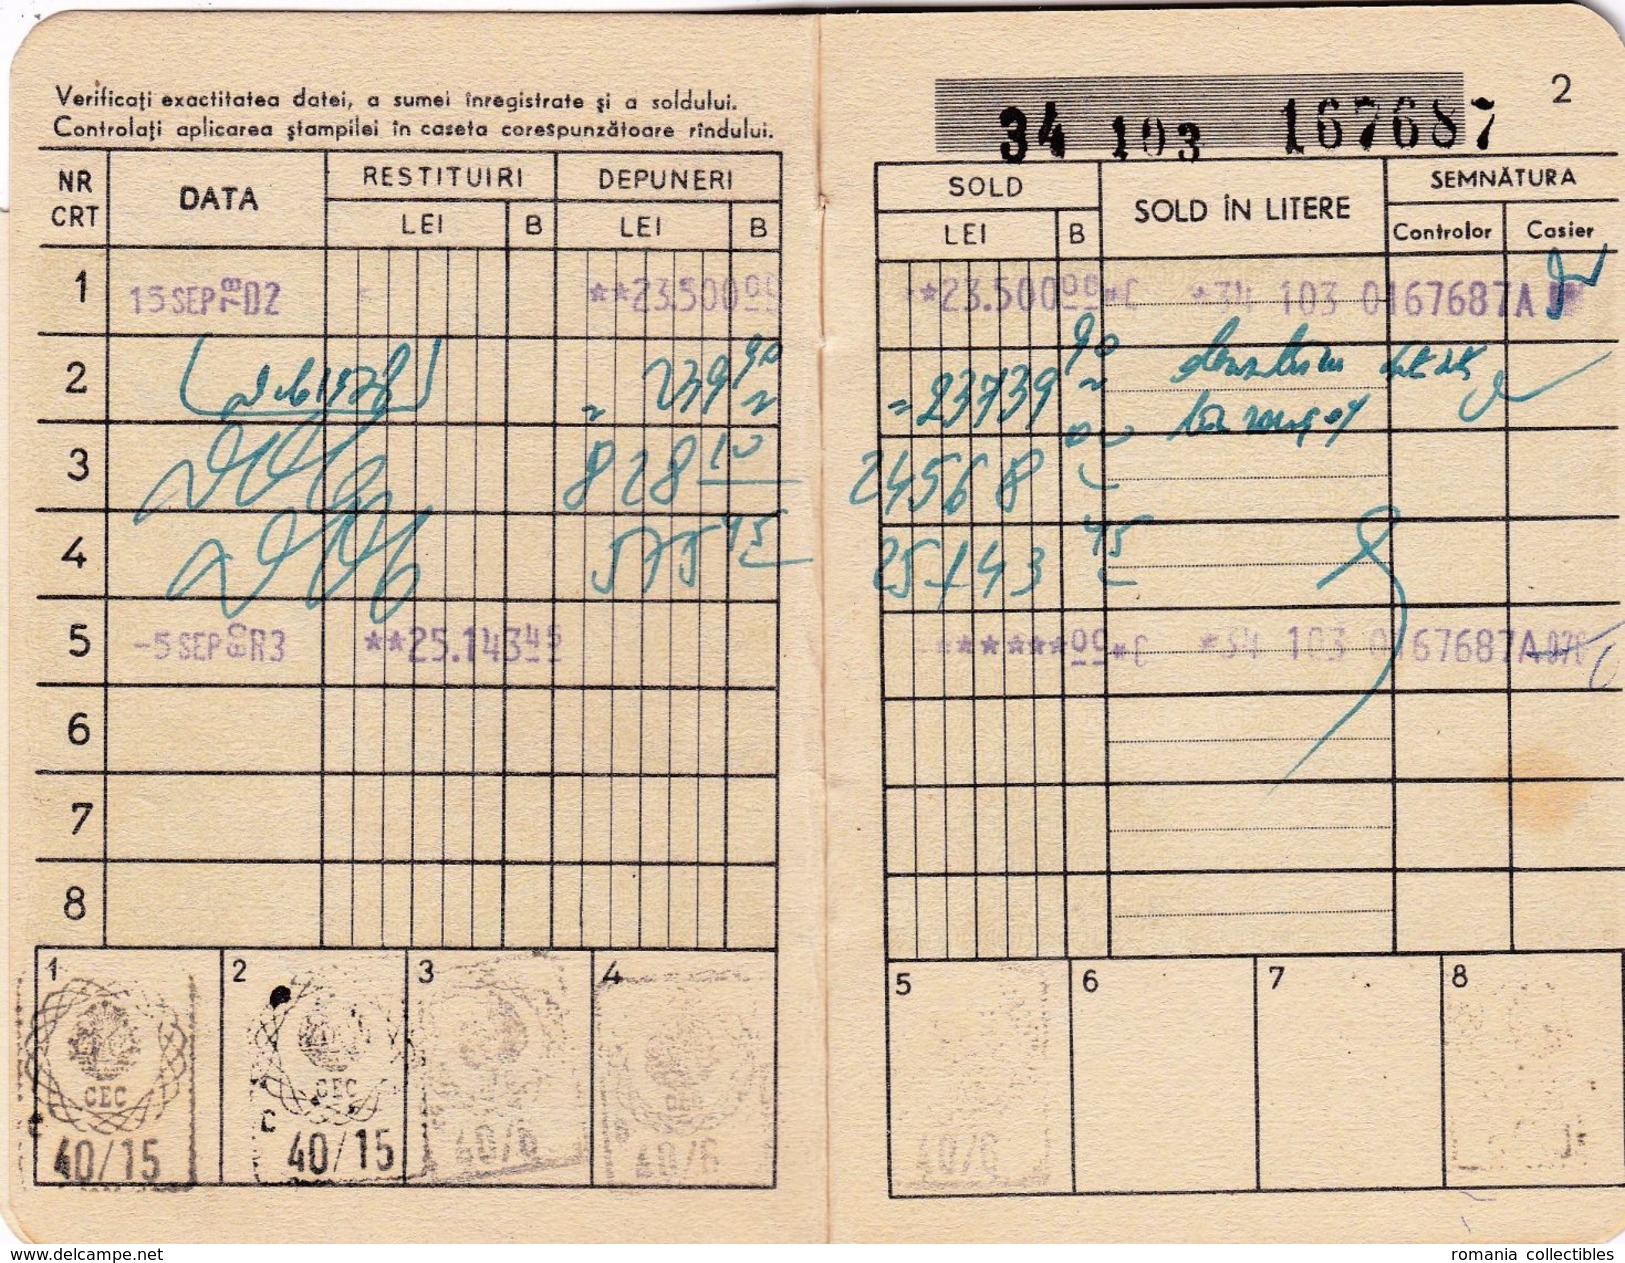 Verificaţi exactitatea datei, a sumei înregistrate şi a soldului.
Controlaţi aplicarea ştampilei în caseta corespunzătoare rîndului.
34 103 167687
2
NR CRT DATA RESTITUIRI LEI B DEPUNERI LEI B SOLD LEI B SOLD ÎN LITERE SEMNĂTURA Controlor Casier
1 15 SEP 78 D2 **23.500 00 **23.500 00 *C *34 103 0167687A
2 1978 = 239 90 = 23739 90
3 828 10 24568 00
4 575 45 25143 45
5 -5 SEP 80 R3 **25.143 45 ****** 00 *C *34 103 0167687A
6
7
8
1 2 3 4 5 6 7 8
CEC CEC CEC
40/15 40/15 40/6 40/6 40/6
www.delcampe.net
romania collectibles